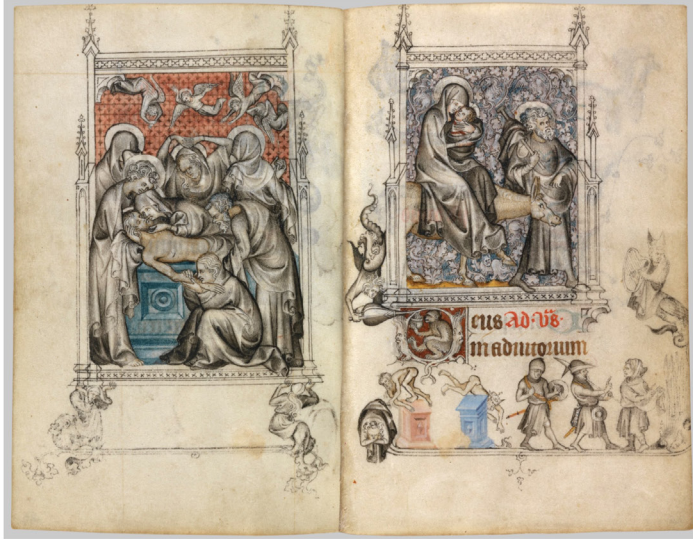 Deus Ad. Vs̄.
in adiutorium